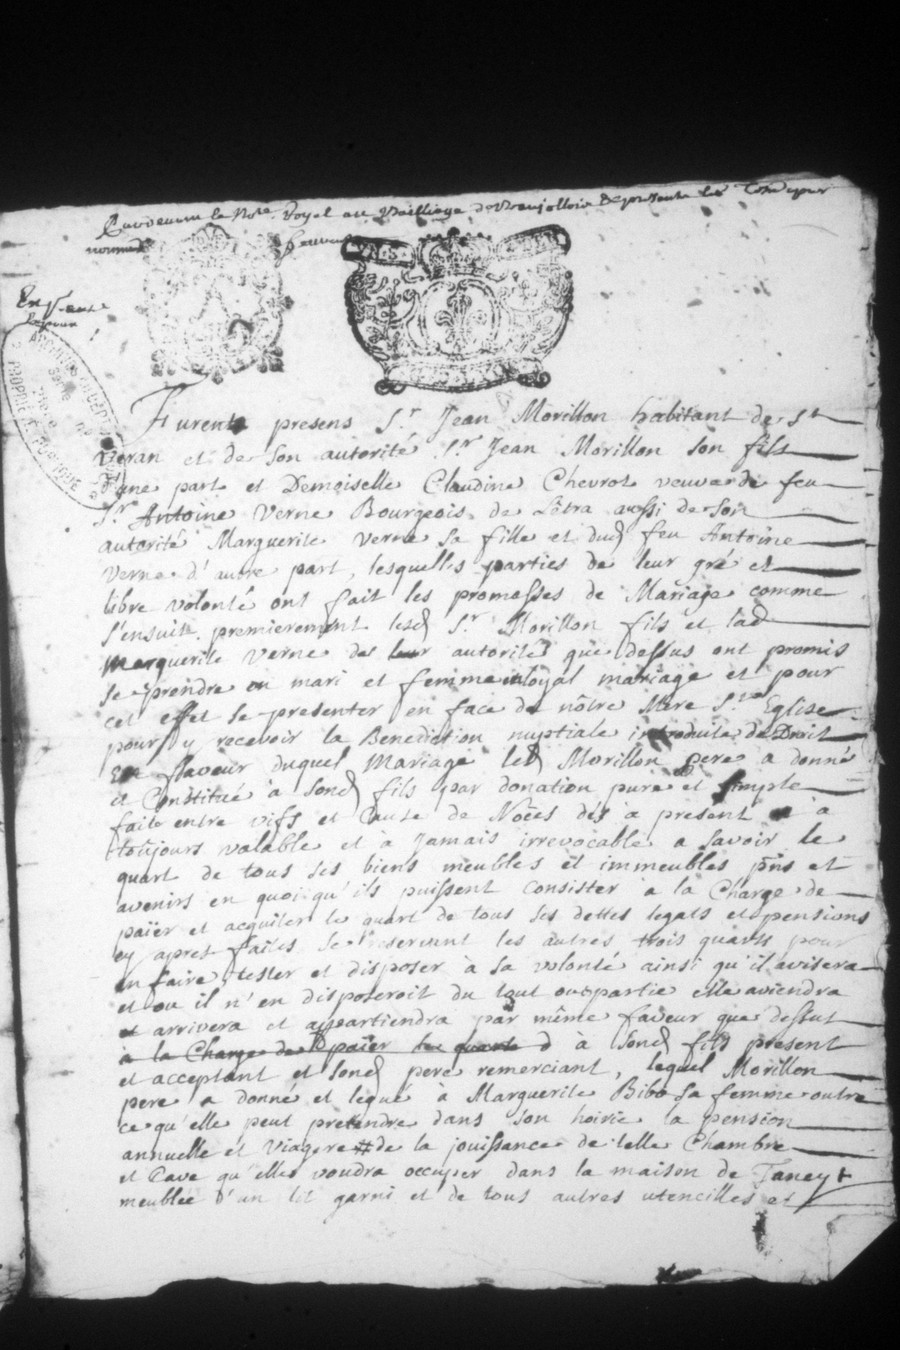 Pardevant le Notre. Royal au Bailliage de Beaujollois & presents les Temoins
nommes
Furent presens Sr. Jean Morillon habitant de St
Veran et de Son autorité Sr Jean Morillon Son fils
d'une part et Demoiselle Claudine Chevrot veuve de feu
Sr. Antoine Verne Bourgeois de Létra aussi de Son
autorité Marguerite Verne Sa fille et dud feu Antoine
Verne d'autre part, lesquelles parties de leur gré et
libre volonté ont fait les promesses de Mariage comme
S'ensuit. premierement lesd Sr. Morillon fils et lad
Marguerite Verne de leur autorité que dessus ont promis
se prendre en mari et femme en loyal mariage et pour
cet effet se presenter en face de nôtre Mere Ste Eglise
pour y recevoir la Benediction nuptiale de Droit
En faveur duquel Mariage led Morillon pere a donné
et Constitué à Sond fils par donation pure et Simple
faite entre vifs et Cause de Nôces dés a present a
toujours valable et à Jamais irrevocable a Savoir le
quart de tous ses biens meubles et immeubles pns et
avenirs en quoi qu'ils puissent Consister a la Charge de
païer et acquiter le quart de tous Ses dettes legats et pensions
cy apres faites se reservant les autres trois quarts pour
en faire, tester et disposer à Sa volonté ainsi qu'il avisera
et ou il n'en disposeroit du tout ou partie elle aviendra
arrivera et appartiendra par même faveur que dessus
a la Charge de païer les quarts à Sond fils present
et acceptant et Sond pere remerciant, lequel Morillon
pere a donné et legué à Marguerite Bibo Sa femme outre
ce qu'elle peut pretendre dans Son hoirie la pension
annuelle et Viagere # de la jouissance de telle Chambre
et Cave qu'elle voudra occuper dans la maison de Taney +
meublée d'un lit garni et de tous autres utencilles et